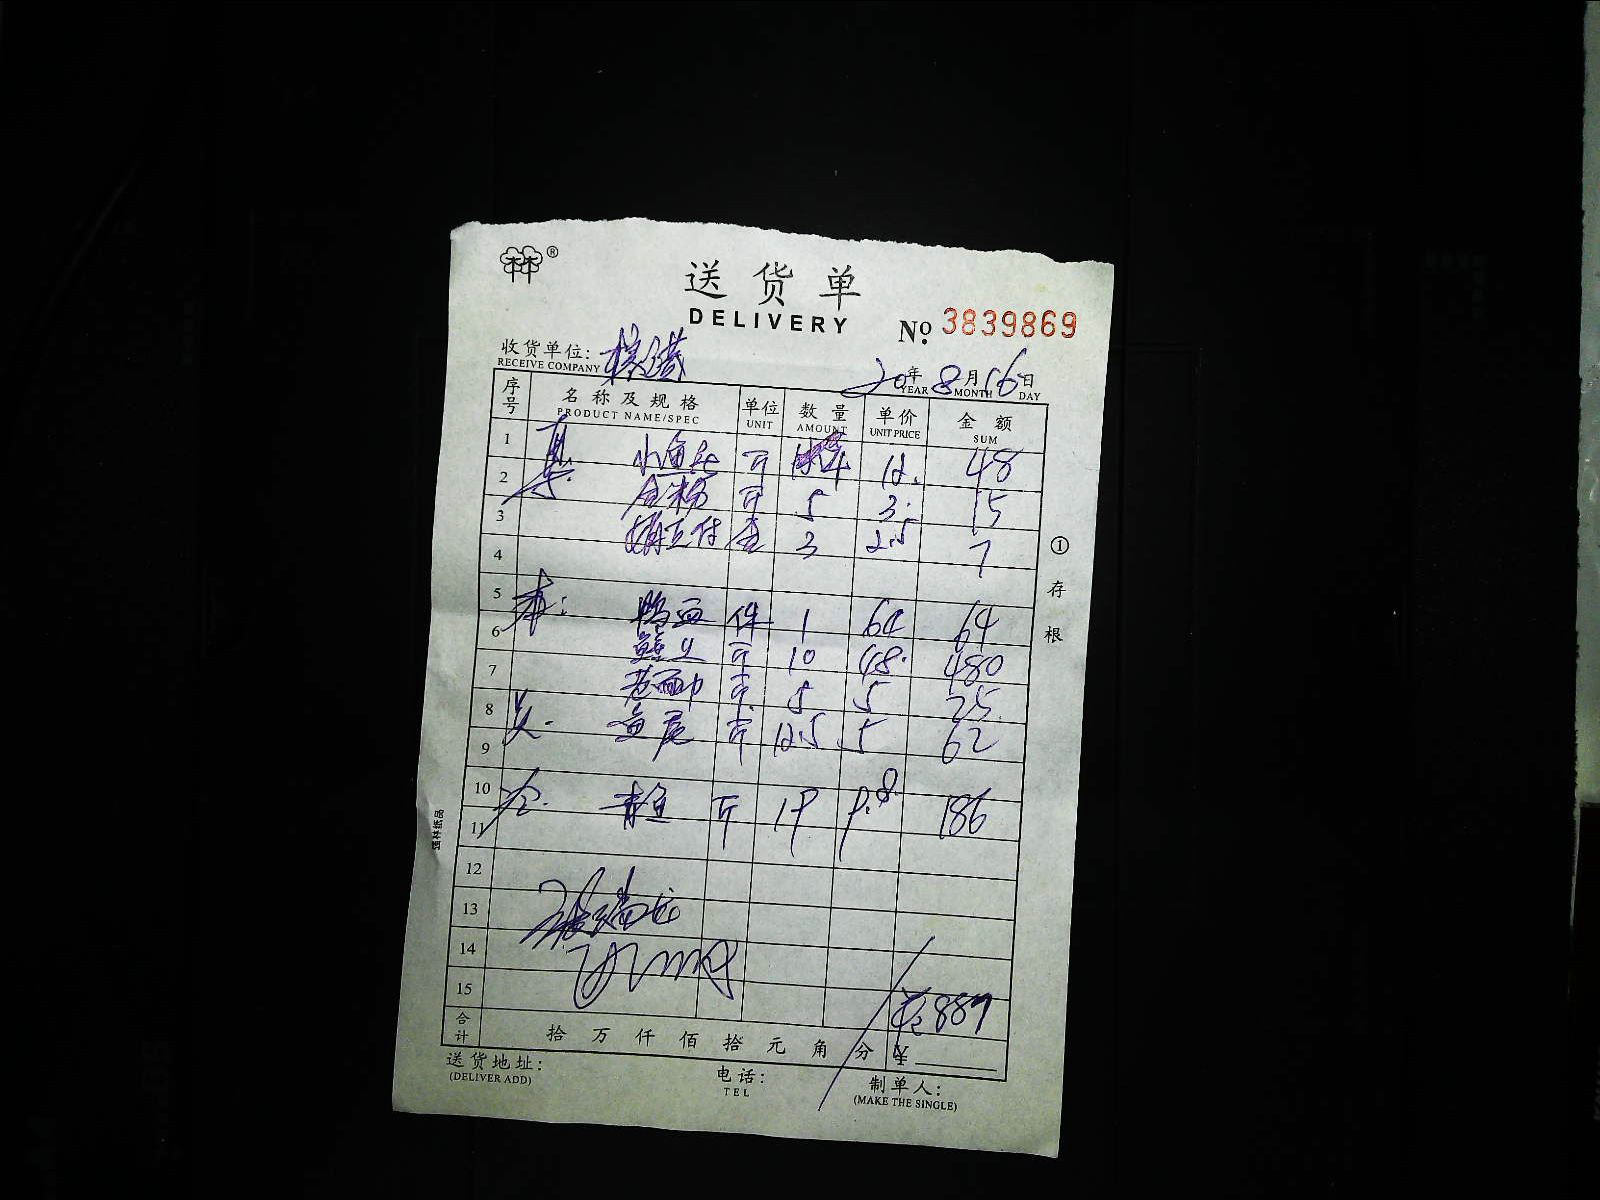 林林®
送货单
DELIVERY
№ 3839869
收货单位:
RECEIVE COMPANY
20年 8月 16日
YEAR MONTH DAY
序号 名称及规格 单位 数量 单价 金额
PRODUCT NAME/SPEC UNIT AMOUNT UNIT PRICE SUM
1 斤 4 12. 48
2 斤 5 3. 15
3 3 2.5 7
4
5 鸭血 件 1 64 64
6 斤 10 48. 480
7 斤 5 5 25.
8 鱼尾 斤 12.5 5 62
9
10 青鱼 斤 19 9.8 186
11
12
13
14
15 887
合计 拾 万 仟 佰 拾 元 角 分 ¥
送货地址: 电话: 制单人:
(DELIVER ADD) TEL (MAKE THE SINGLE)
①存根
强林纸品